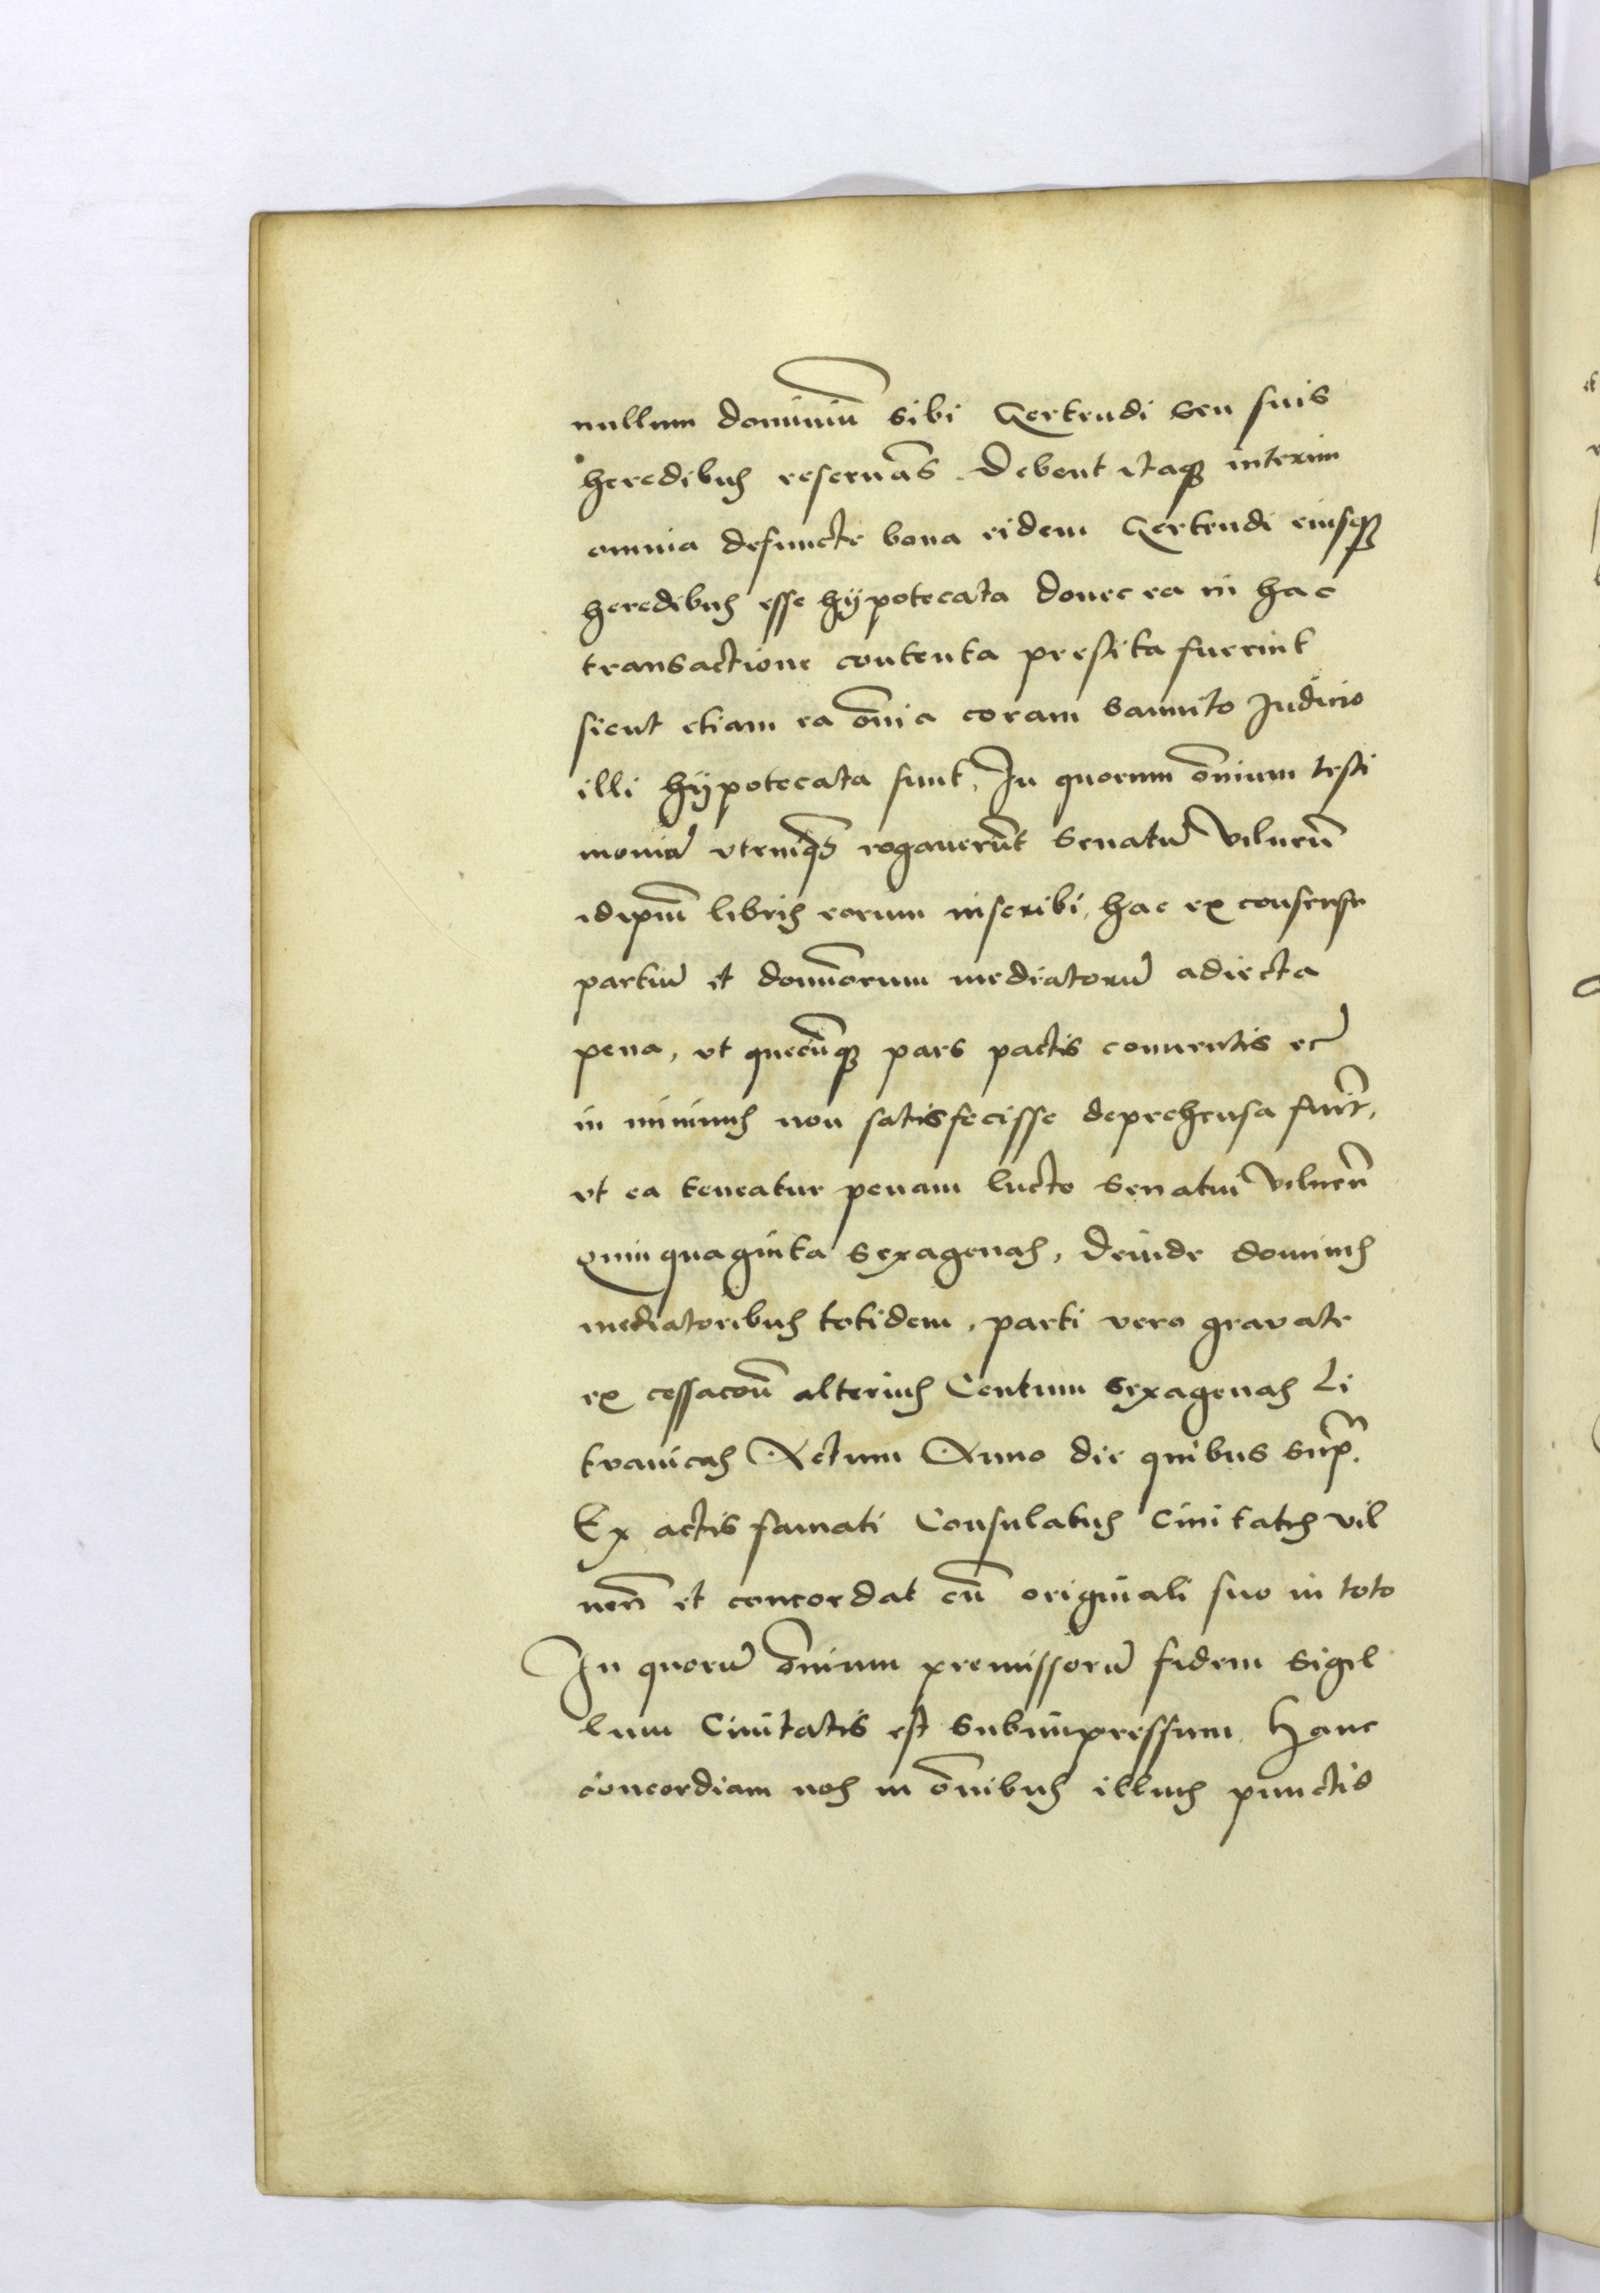 nullum dominiu̅ sibi Gertrudi seu suis
heredibus reserua̅s. Debent itaq3 interim
omnia defuncte bona eidem Gertrudi eiusq3
heredibus esse hÿpotecata donec ea in hac
transactione contenta prestita fuerint
sicut etiam ea o̅nia coram bannito Judicio
illi hÿpotecata sunt, In quorum o̅nium testi
moniu̅ utrinq3 rogaueru̅t Senatu̅ Vilnen̅
id ip̅m libris eorum inscribi, hac ex consensu
partiu̅ et domi̅orum mediatoru̅ adiecta
pena, vt quecu̅q3 pars pactis conuentis et
in minimis non satisfecisse deprehensa fuer̅it,
vt ea teneatur penam lucto Senatui Vilnen̅
quinquaginta sexagenas, Deinde dominis
mediatoribus totidem, parti vero grauate
ex cessaco̅n alterius Centum sexagenas Li
tvanicas Actum Anno die quibus sup̅.
Ex actis famati Consulatus Ciuitatis vil
nen̅ et concordat cu̅ originali suo in toto
In quoru̅ o̅nium premissoru̅ fidem sigil
lum Ciuitatis est subimpressum Hanc
concordiam nos in o̅nibus illius punctis